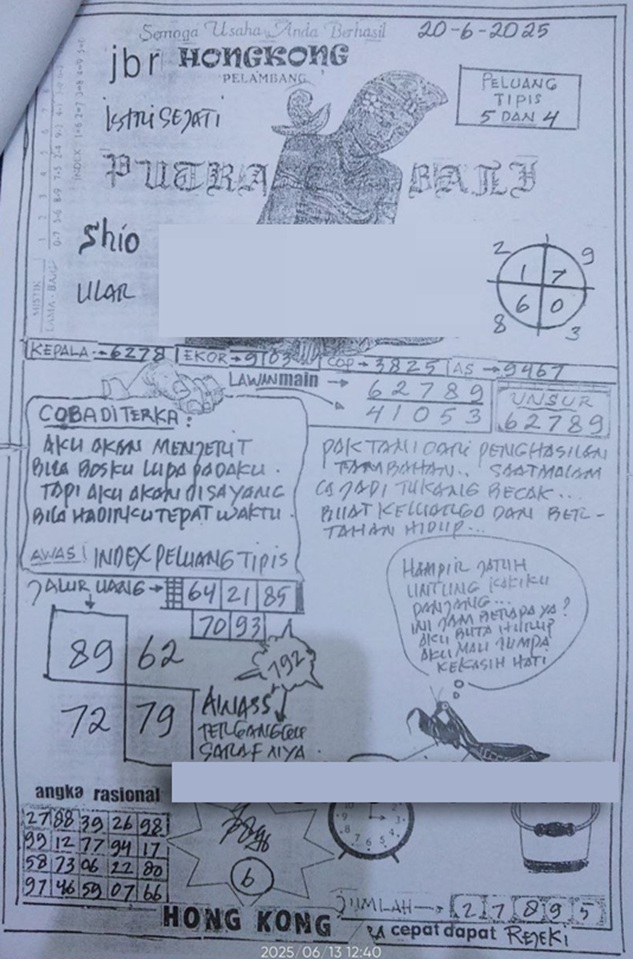 Semoga Usaha Anda Berhasil
20-6-2025
jbr HONGKONG
PELAMBANG
PELUANG
TIPIS
5 DAN 4
ISTRI SEJATI
PUTRA BALI
Shio
ULAR
MISTIK
LAMA - BARU
INDEX
2 1 9
1 7
6 0
8 3
KEPALA → 6278 EKOR → 9103 COP → 3825 AS → 9467
LAWAN main → 62789
41053
UNSUR
62789
COBA DITERKA :
AKU AKAN MENJERIT
BILA BOSKU LUPA PADAKU .
TAPI AKU AKAN DISAYANG
BILA HADIRKU TEPAT WAKTU .
AWAS! INDEX PELUANG TIPIS
PAK TANI DARI PENGHASILAN
TAMBAHAN.. SAAT MALAM
JADI TUKANG BECAK...
BUAT KELUARGO DAN BER-
TAHAN HIDUP...
JALUR UANG → 64 21 85
70 93
89 62
72 79
792
AWASS
TERGANGGU
SARAF NIYA
HAMPIR JATUH
UNTUNG KAKIKU
PANJANG...
INI JAM BERAPA YA?
AKU BUTA HURUP
AKU MAU JUMPA
KEKASIH HATI
angka rasional
27 88 39 26 98
99 12 77 94 17
58 73 06 22 80
97 46 59 07 66
6
JUMLAH → 2 7 8 9 5
HONG KONG
cepat dapat REJEKI
2025/06/13 12:40